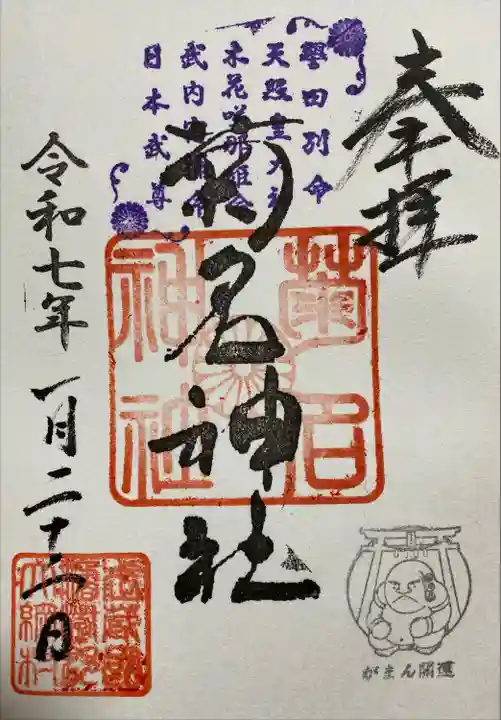 奉拝
誉田別命
天照皇大神
木花咲耶姫命
武内宿禰命
日本武尊
菊名神社
菊名
神社
令和七年
一月二十二日
がまん開運